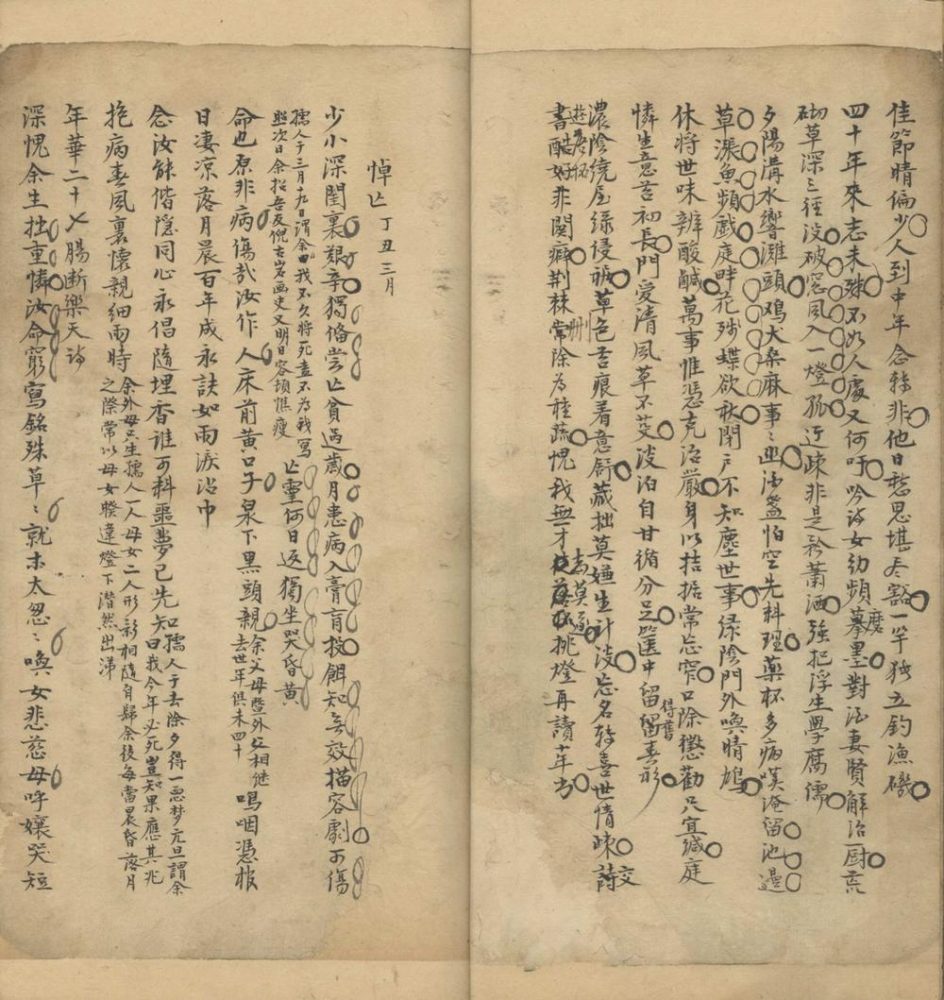 佳節晴偏少人到中年念轉非他日愁思堪盡豁一竿獨立釣漁磯
四十年來志未殊不如人處又何吁吟詩女幼頻摹磨墨對酒妻賢解治厨荒
砌草深三徑沒破窓風入一燈孤迂疎非是矜蕭洒強把浮生學腐儒
夕陽溝水響灘頭鷄犬桑麻事事幽酒盞怕空先料理藥杯多病嘆淹留池邊
草漾魚頻戲庭畔花殘蝶欲秋閉戶不知塵世事綠陰門外喚晴鳩
休將世味辨酸鹹萬事惟憑克治嚴身以拮据常忘窄口除懲勸只宜緘庭
憐生意苔初長門愛清風草不芟淡泊自甘循分足篋中留得舊留春衫
濃陰繞屋綠侵裾草色苔痕着意舒藏拙莫嫌生計淡忘名轉喜世情疎詩交
遊
書酷好非関癖荆棘刪常除為種蔬愧我無才為莫逐挑燈再讀十年書
悼亡丁丑三月
少小深閨裏艱辛獨備嘗亡貧過歲月患病入膏肓投餌知無效描容劇可傷
孺人于三月十九日謂余曰我不久將死盍不為我寫
照次日余招吾友倪古岩画史又明日容頗憔瘦
亡靈何日返獨坐哭昏黄
命也原非病傷哉汝作人床前黄口子泉下黑頭親
余父母暨外父相継
去世年俱未四十
嗚咽憑棺
日淒凉落月晨百年成永訣如雨淚沾巾
念汝能偕隱同心永倡隨埋香誰可料噩夢已先知
孺人于去除夕得一惡梦元旦謂余
曰我今年必死豈知果應其兆
抱病春風裏懷親細雨時
余外母只生孺人一人母女二人形影相隨自歸余後每當晨昏落月
之際常以母女睽違燈下潸然出涕
年華二十七腸断樂天詩
深愧余生拙重憐汝命窮寫銘殊草草就木太怱怱喚女悲慈母呼孃哭短